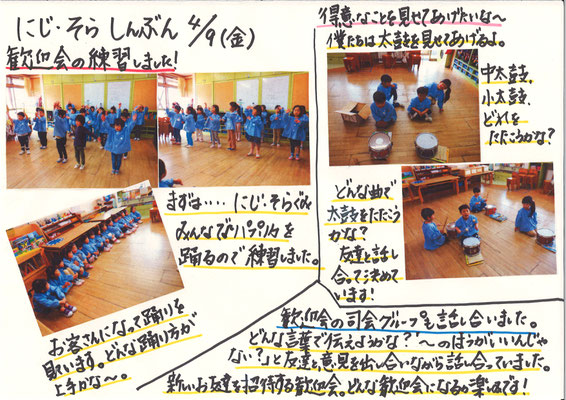 にじ・そら しんぶん 4/9(金)
歓迎会の練習しました!
まずは‥‥ にじ・そらぐみ
みんなでパプリカを
踊るので練習しました。
お客さんになって踊りを
見ています。どんな踊り方が
上手かな〜。
得意なことを見せてあげたいな〜
僕たちは太鼓を見せてあげるよ。
中太鼓、
小太鼓、
どれを
たたこうかな?
どんな曲で
太鼓をたたこう
かな?
友達と話し
合って決めて
います!
歓迎会の司会グループも話し合いました。
どんな言葉で伝えようかな?"〜のほうがいいんじゃ
ない?」と友達と意見を出し合いながら話し合っていました。
新しいお友達を招待する歓迎会。どんな歓迎会になるか楽しみです!